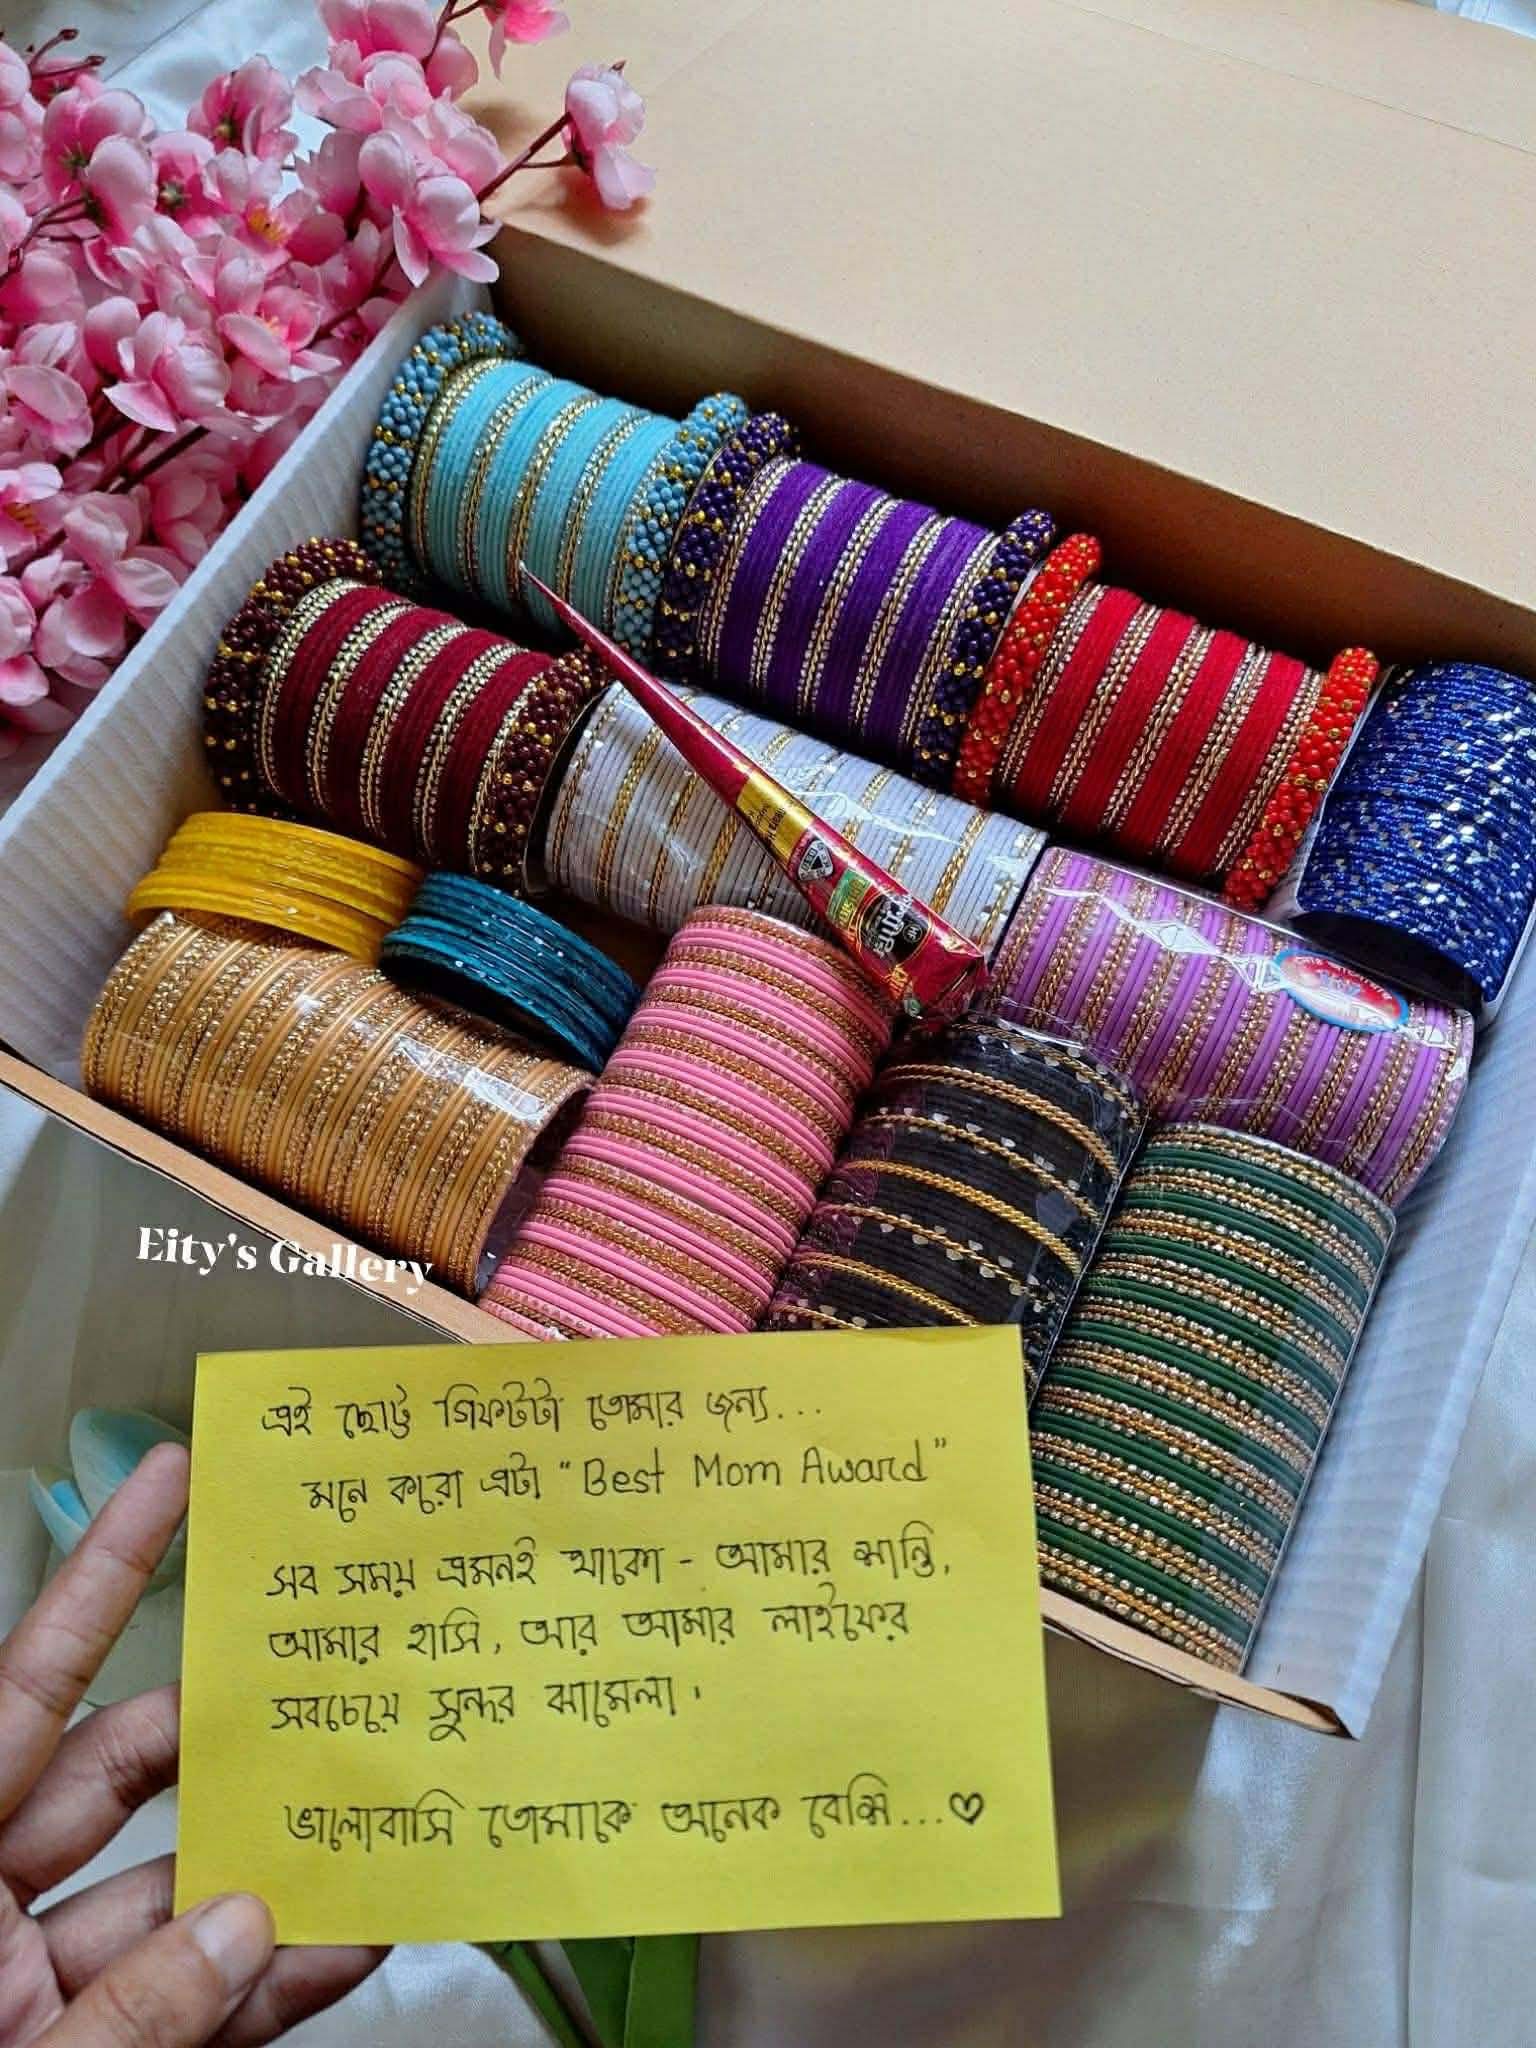 Eity's Gallery
এই ছোট্ট গিফটটা তোমার জন্য...
মনে করো এটা "Best Mom Award"
সব সময় এমনই থাকো - আমার শান্তি,
আমার হাসি, আর আমার লাইফের
সবচেয়ে সুন্দর ঝামেলা।
ভালোবাসি তোমাকে অনেক বেশি...♡